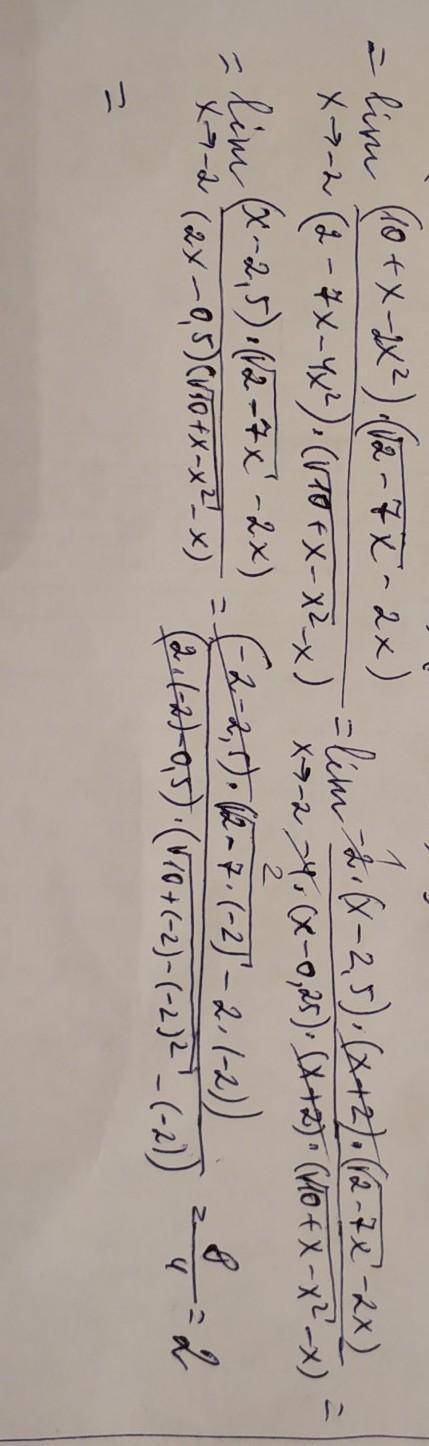 = lim x→-2 (10+x-2x²)·(√(2-7x) - 2x) / (2-7x-4x²)·(√(10+x-x²) - x) = lim x→-2 -2·(x-2,5)·(x+2)·(√(2-7x) - 2x) / -4·(x-0,25)·(x+2)·(√(10+x-x²) - x) =
= lim x→-2 (x-2,5)·(√(2-7x) - 2x) / (2x-0,5)(√(10+x-x²) - x) = (-2-2,5)·(√(2-7·(-2)) - 2·(-2)) / (2·(-2)-0,5)·(√(10+(-2)-(-2)²) - (-2)) = 8/4 = 2
=